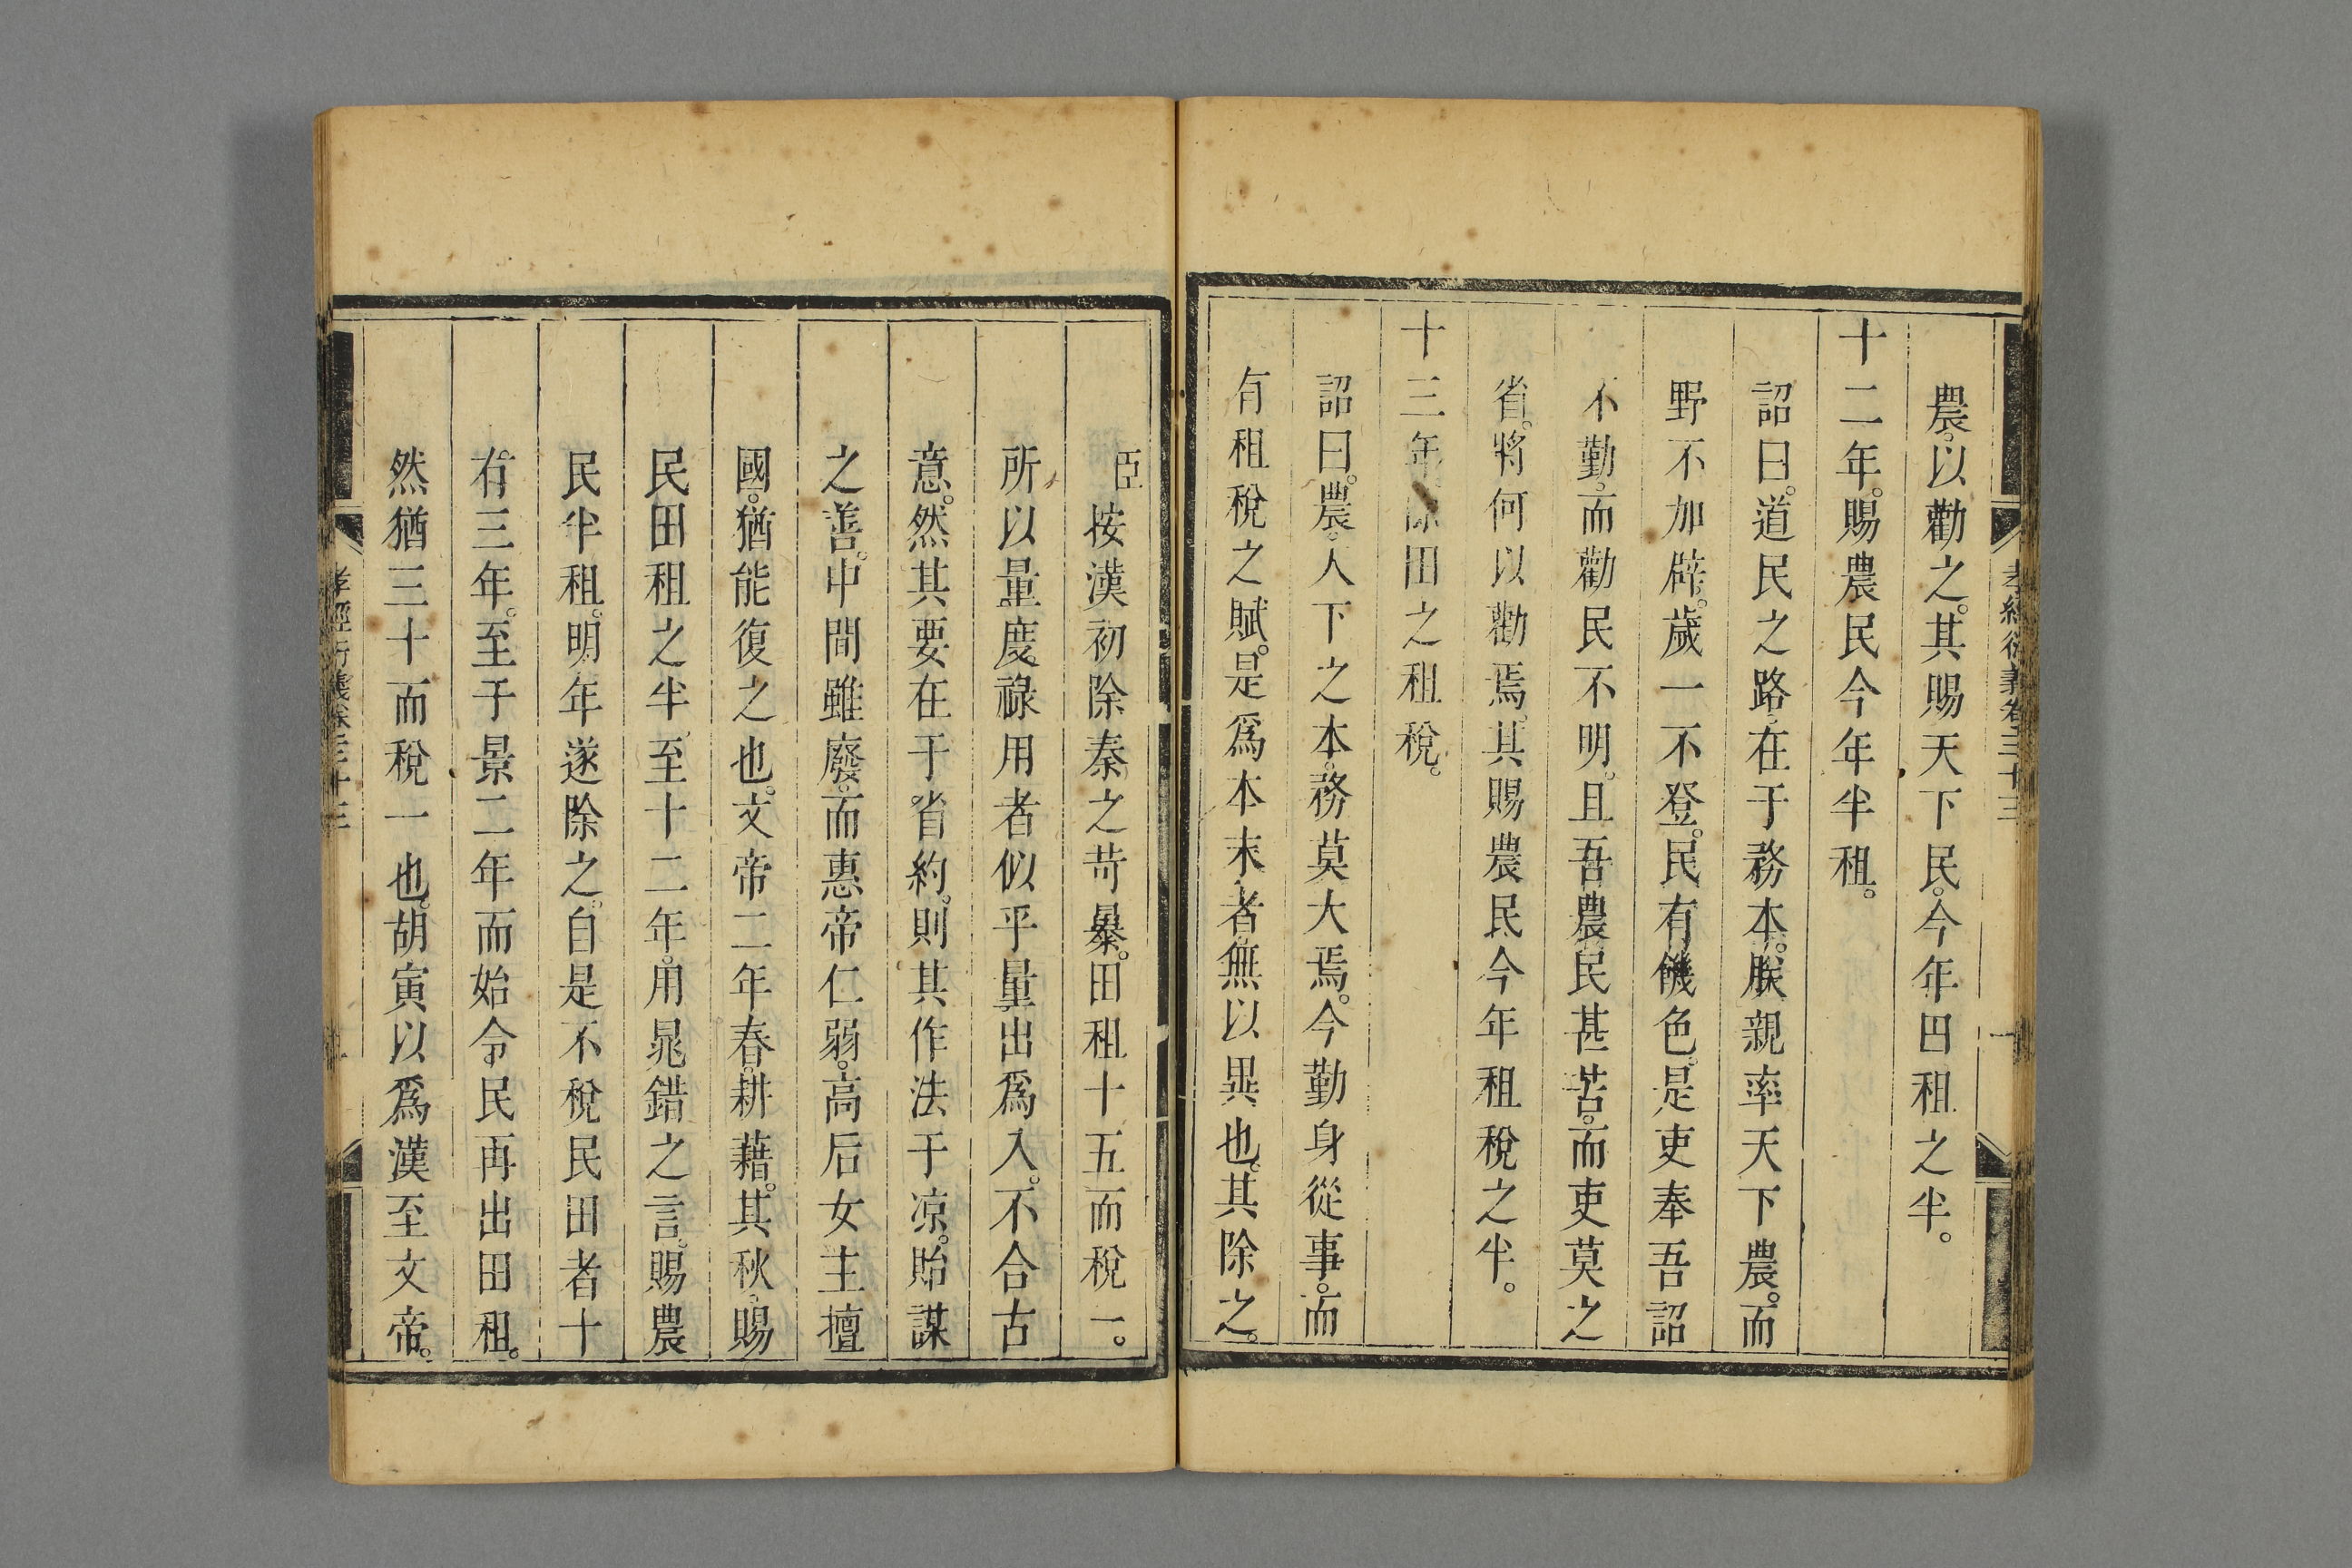 孝經衍義卷三十三
一
農。以勸之。其賜天下民。今年田租之半。
十二年。賜農民今年半租。
詔曰。道民之路。在于務本。朕親率天下農。而
野不加辟。歲一不登。民有饑色。是吏奉吾詔
不勤。而勸民不明。且吾農民甚苦。而吏莫之
省。將何以勸焉。其賜農民今年租稅之半。
十三年除田之租稅。
詔曰。農。天下之本。務莫大焉。今勤身從事。而
有租稅之賦。是爲本末者。無以異也。其除之。
臣按漢初除秦之苛暴。田租十五而稅一。
所以量度祿用者似乎量出爲入。不合古
意。然其要在于省約。則其作法于凉。貽謀
之善。中間雖廢。而惠帝仁弱。高后女主擅
國。猶能復之也。文帝二年春。耕藉。其秋。賜
民田租之半至十二年。用晁錯之言。賜農
民半租。明年遂除之。自是不稅民田者十
有三年。至于景二年而始令民再出田租。
然猶三十而稅一也。胡寅以爲漢至文帝。
孝經衍義卷三十三